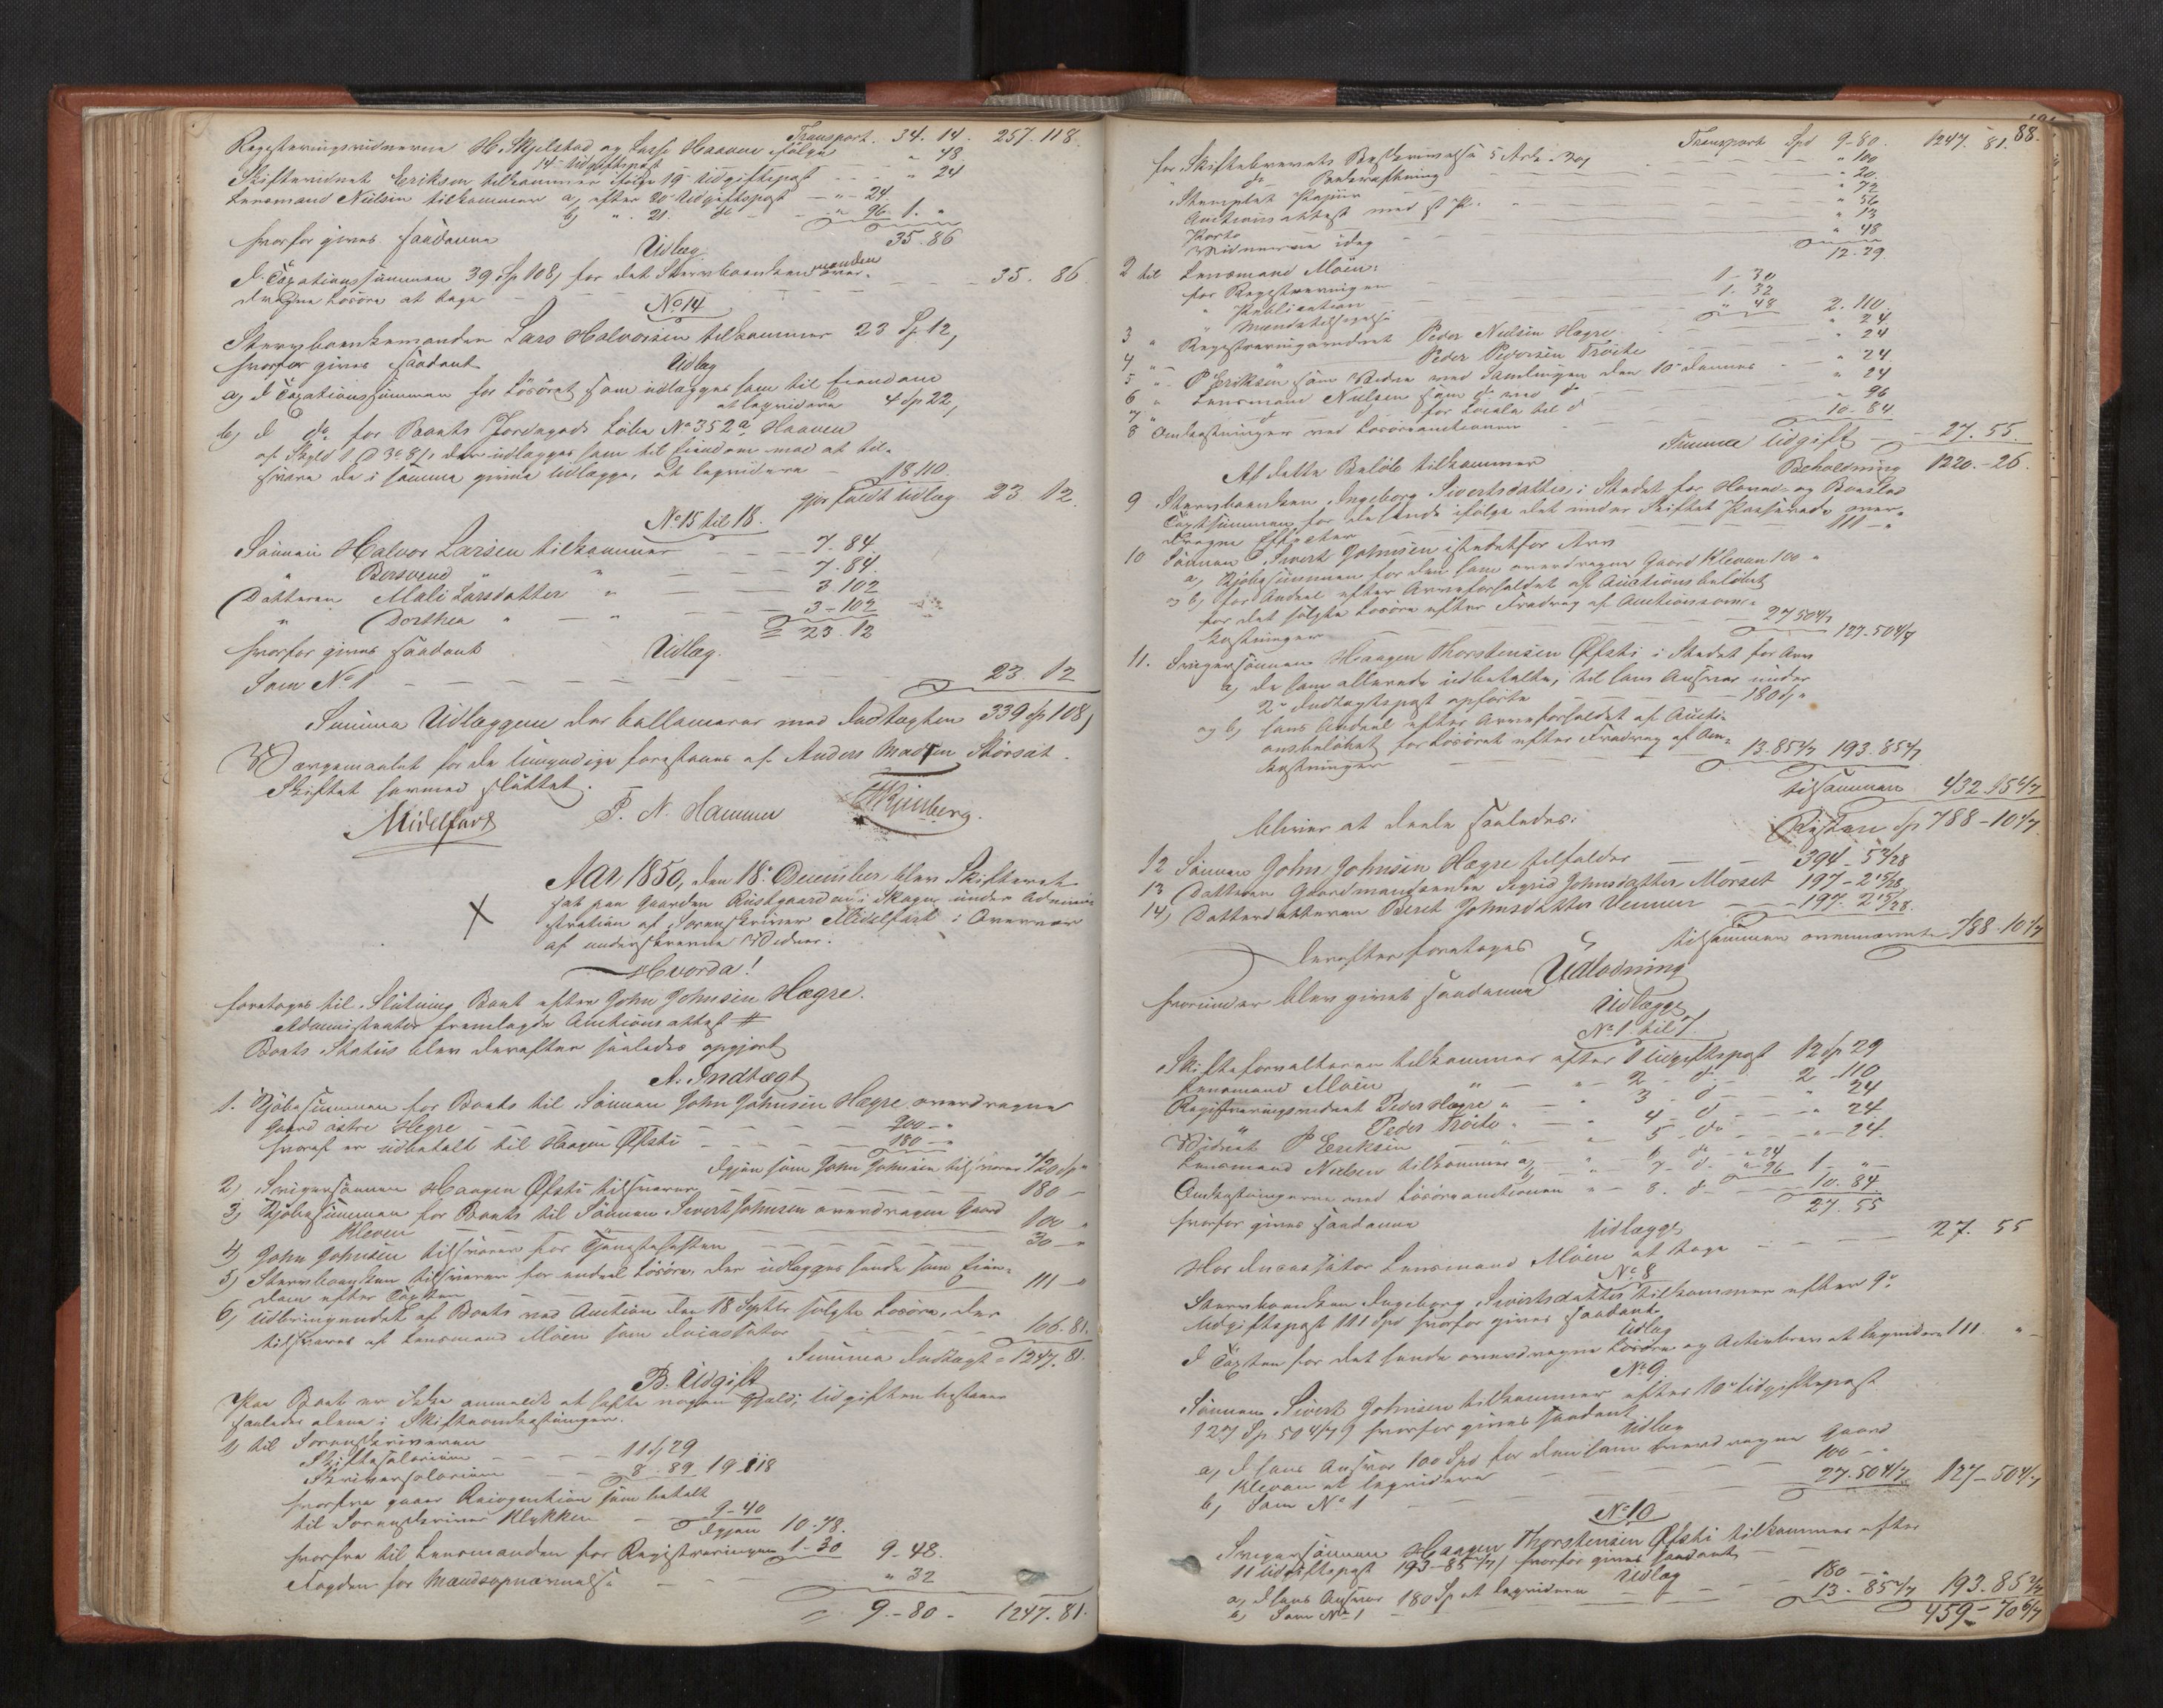 Transport. 34. 14. 257. 118.
Registreringsvidnerne H. Skjelstad og Lasse Haaven ifølge
14 Udgiftspost " 48
Skiftevidnet Eriksen tilkommer ifølge 19 Udgiftspost " 24
Lensmand Nielsen tilkommer a, efter 20 Udgiftspost " 24
b, " 21. do " 96 1. "
hvorfor gives saadanne 35. 86
Udlæg
I Taxationssummen 39 Sp 108, for det Stervboenkemanden over-
dragne Løsøre at tage 35. 86
No 14
Stervboenkemanden Lars Halvorsen tilkommer 23 Sp 12,
hvorfor gives saadant
Udlæg
a, I Taxationssummen for Løsøret som udlægges ham til Eiendom
at liqvidere 4 Sp 22,
b, I do for Boets Jordegods Løbe No 352a Haaven
af Skyld 1 D 3 8, der udlægges ham til Eiendom mod at til-
svare de i samme givne Udlægge, at liqvidere 18. 110.
gjør fuldt Udlæg 23. 12.
No 15 til 18.
Sønnen Halvor Larsen tilkommer 7. 84.
" Bersvend " 7. 84.
Datteren Mali Larsdatter " 3. 102
" Dorthea " 3. 102
= 23. 12
hvorfor gives saadant
Udlæg.
Som No 1 23. 12
Summa Udlæggene der ballancerer med Indtægten 339 Sp 108,
Værgemaalet for de Umyndige forestaaes af Anders Madsen Størsæt.
Skiftet hermed sluttet.
Midelfart P. N. Hammer
Aar 1850, den 18de December blev Skifteret
sat paa Gaarden Rustgaarden i Skogn under Admini-
stration af Sorenskriver Midelfart i Overvær
af underskrevne Vidner.
X
Hvorda!
foretoges til Slutning Boet efter John Johnsen Hegre.
Administrator fremlagde Auctionsattest #
Boets Status blev derefter saaledes opgjort
A. Indtægt
1. Kjøbesummen for Boets til Sønnen John Johnsen Hegre overdragne
Gaard østre Hegre 900 - "
hvoraf er udbetalt til Haagen Øfsti 180 - "
Igjen som John Johnsen tilsvarer 720 Sp "
2) Svigersønnen Haagen Øfsti tilsvarer 180 -
3) Kjøbesummen for Boets til Sønnen Sivert Johnsen overdragne Gaard
Kleven 100 "
4) John Johnsen tilsvarer for Tjenestehesten 30 - "
5) Stervboenken tilsvarer for endeel Løsøre, der udlægges hende som Eien-
dom efter Taxten 111 - "
6) Udbringendet af Boets ved Auction den 18 Septbr solgte Løsøre, der
tilsvares af Lensmand Møen som Incassator 106. 81.
Summa Indtægt = 1247. 81.
B. Udgift
Paa Boet er ikke anmeldt at hefte nogen Gjeld; Udgiften bestaaer
saaledes alene i Skifteomkostninger.
1) til Sorenskriveren
Skiftesalarium 11 Sp 29
Skriversalarium 8. 89 19. 118
hvorfra gaaer Recognition som betalt
til Sorenskriver Klykken 9 - 40
Igjen 10. 78.
hvorfra til Lensmanden for Registreringen 1 - 30 9 - 48.
Fogden for Mandsopnævnelse " 32
= 9. - 80 - 1247. 81.
88.
Transport Spd 9 - 80. 1247. 81.
for Skiftebrevets Beskrivelse 5 Ark a 20, " 100
" do Bekræftning " 20.
Stemplet Papiir " 72
Auctionsattest med st P. " 56
Porto " 13
Vidnerne idag " 48
12. 29
2 til Lensmand Møen:
for Registreringen 1 - 30
" Publication 1. 32
" Mandstilsigelse " 48 2. 110.
3 " Registreringsvidnet Peder Nielsen Hegre " 24
4 " " Peder Pedersen Trøite " 24
5 " P Eriksen som Vidne ved Samlingen den 10 dennes " 24
6 " Lensmand Nielsen som do ved do " 24
7 " do for Locale til do " 96
8 Omkostninger ved Løsøreauctionen 10. 84
Summa Udgift 27. 55.
Beholdning 1220. - 26.
Af dette Beløb tilkommer
9 Stervboenken Ingeborg Sivertsdatter, i Stedet for Hoved- og Boeslod
Taxtsummen for de hende ifølge det under Skiftet Passerede over-
dragne Effecter 111 - "
10 Sønnen Sivert Johnsen istedetfor Arv
a, Kjøbesummen for den ham overdragne Gaard Kleven 100 "
og b, for Andeel efter Arveforholdet af Auctionsbeløbet
for det solgte Løsøre efter Fradrag af Auctionsom-
kostninger 27. 50 4/7 127. 50 4/7
11. Svigersønnen Haagen Thorstensen Øfsti i Stedet for Arv
a, de ham allerede udbetalte, til hans Ansvar under
2de Indtægtspost opførte 180 Sp "
og b, hans Andeel efter Arveforholdet af Aucti-
onsbeløbet for Løsøret efter Fradrag af Om-
kostninger 13. 85 2/7 193. 85 2/7
tilsammen 432. 15 6/7
bliver at deele saaledes: Resten Sp 788 - 10 1/7
12 Sønnen John Johnsen Hegre tilfalder 394 - 5 2/28
13 Datteren Gaardmandsenke Sigrid Johnsdatter Morset 197 - 2 15/28
14) Datterdatteren Beret Johnsdatter Vennen 197. 2 15/28.
tilsammen ovennævnte 788. 10 1/7
Derefter foretoges
Udlodning
hvorunder blev givet saadanne
Udlægge
No 1 til 7.
Skifteforvalteren tilkommer efter 1 Udgiftspost 12 Sp 29
Lensmand Møen " 2 - do 2 - 110
Registreringsvidnet Peder Hegre " 3 - do " 24
" Peder Trøite " 4 - do " 24
Vidnet P Eriksen " 5 - do " 24.
Lensmand Nielsen tilkommer a, " 6 do " 24
b, 7 - do " 96 1 - "
Omkostningerne ved Løsøreauctionen " 8. do 10. 84
27. 55
hvorfor gives saadanne
Udlægge
Hos Incassator Lensmand Møen at tage 27. 55
No 8
Stervboenken Ingeborg Sivertsdatter tilkommer efter 9de
Udgiftspost 111 Spd hvorfor gives saadant
Udlæg
I Taxten for det hende overdragne Løsøre og Actiebrev at liqvidere 111. "
No 9
Sønnen Sivert Johnsen tilkommer efter 10de Udgiftspost
127 Sp. 50 4/7 hvorfor gives saadant
Udlæg
a, I hans Ansvar 100 Spd for den ham overdragne Gaard
Kleven at liqvidere 100 - "
b, Som No 1 27. 50 4/7 127 - 50 4/7
No 10
Svigersønnen Haagen Thorstensen Øfsti tilkommer efter
11 Udgiftspost 193 - 85 2/7, hvorfor gives saadant
Udlæg
a, I hans Ansvar 180 Sp at liqvidere 180 - "
b, Som No 1 13. 85 2/7 193. 85 2/7
459 - 70 6/7